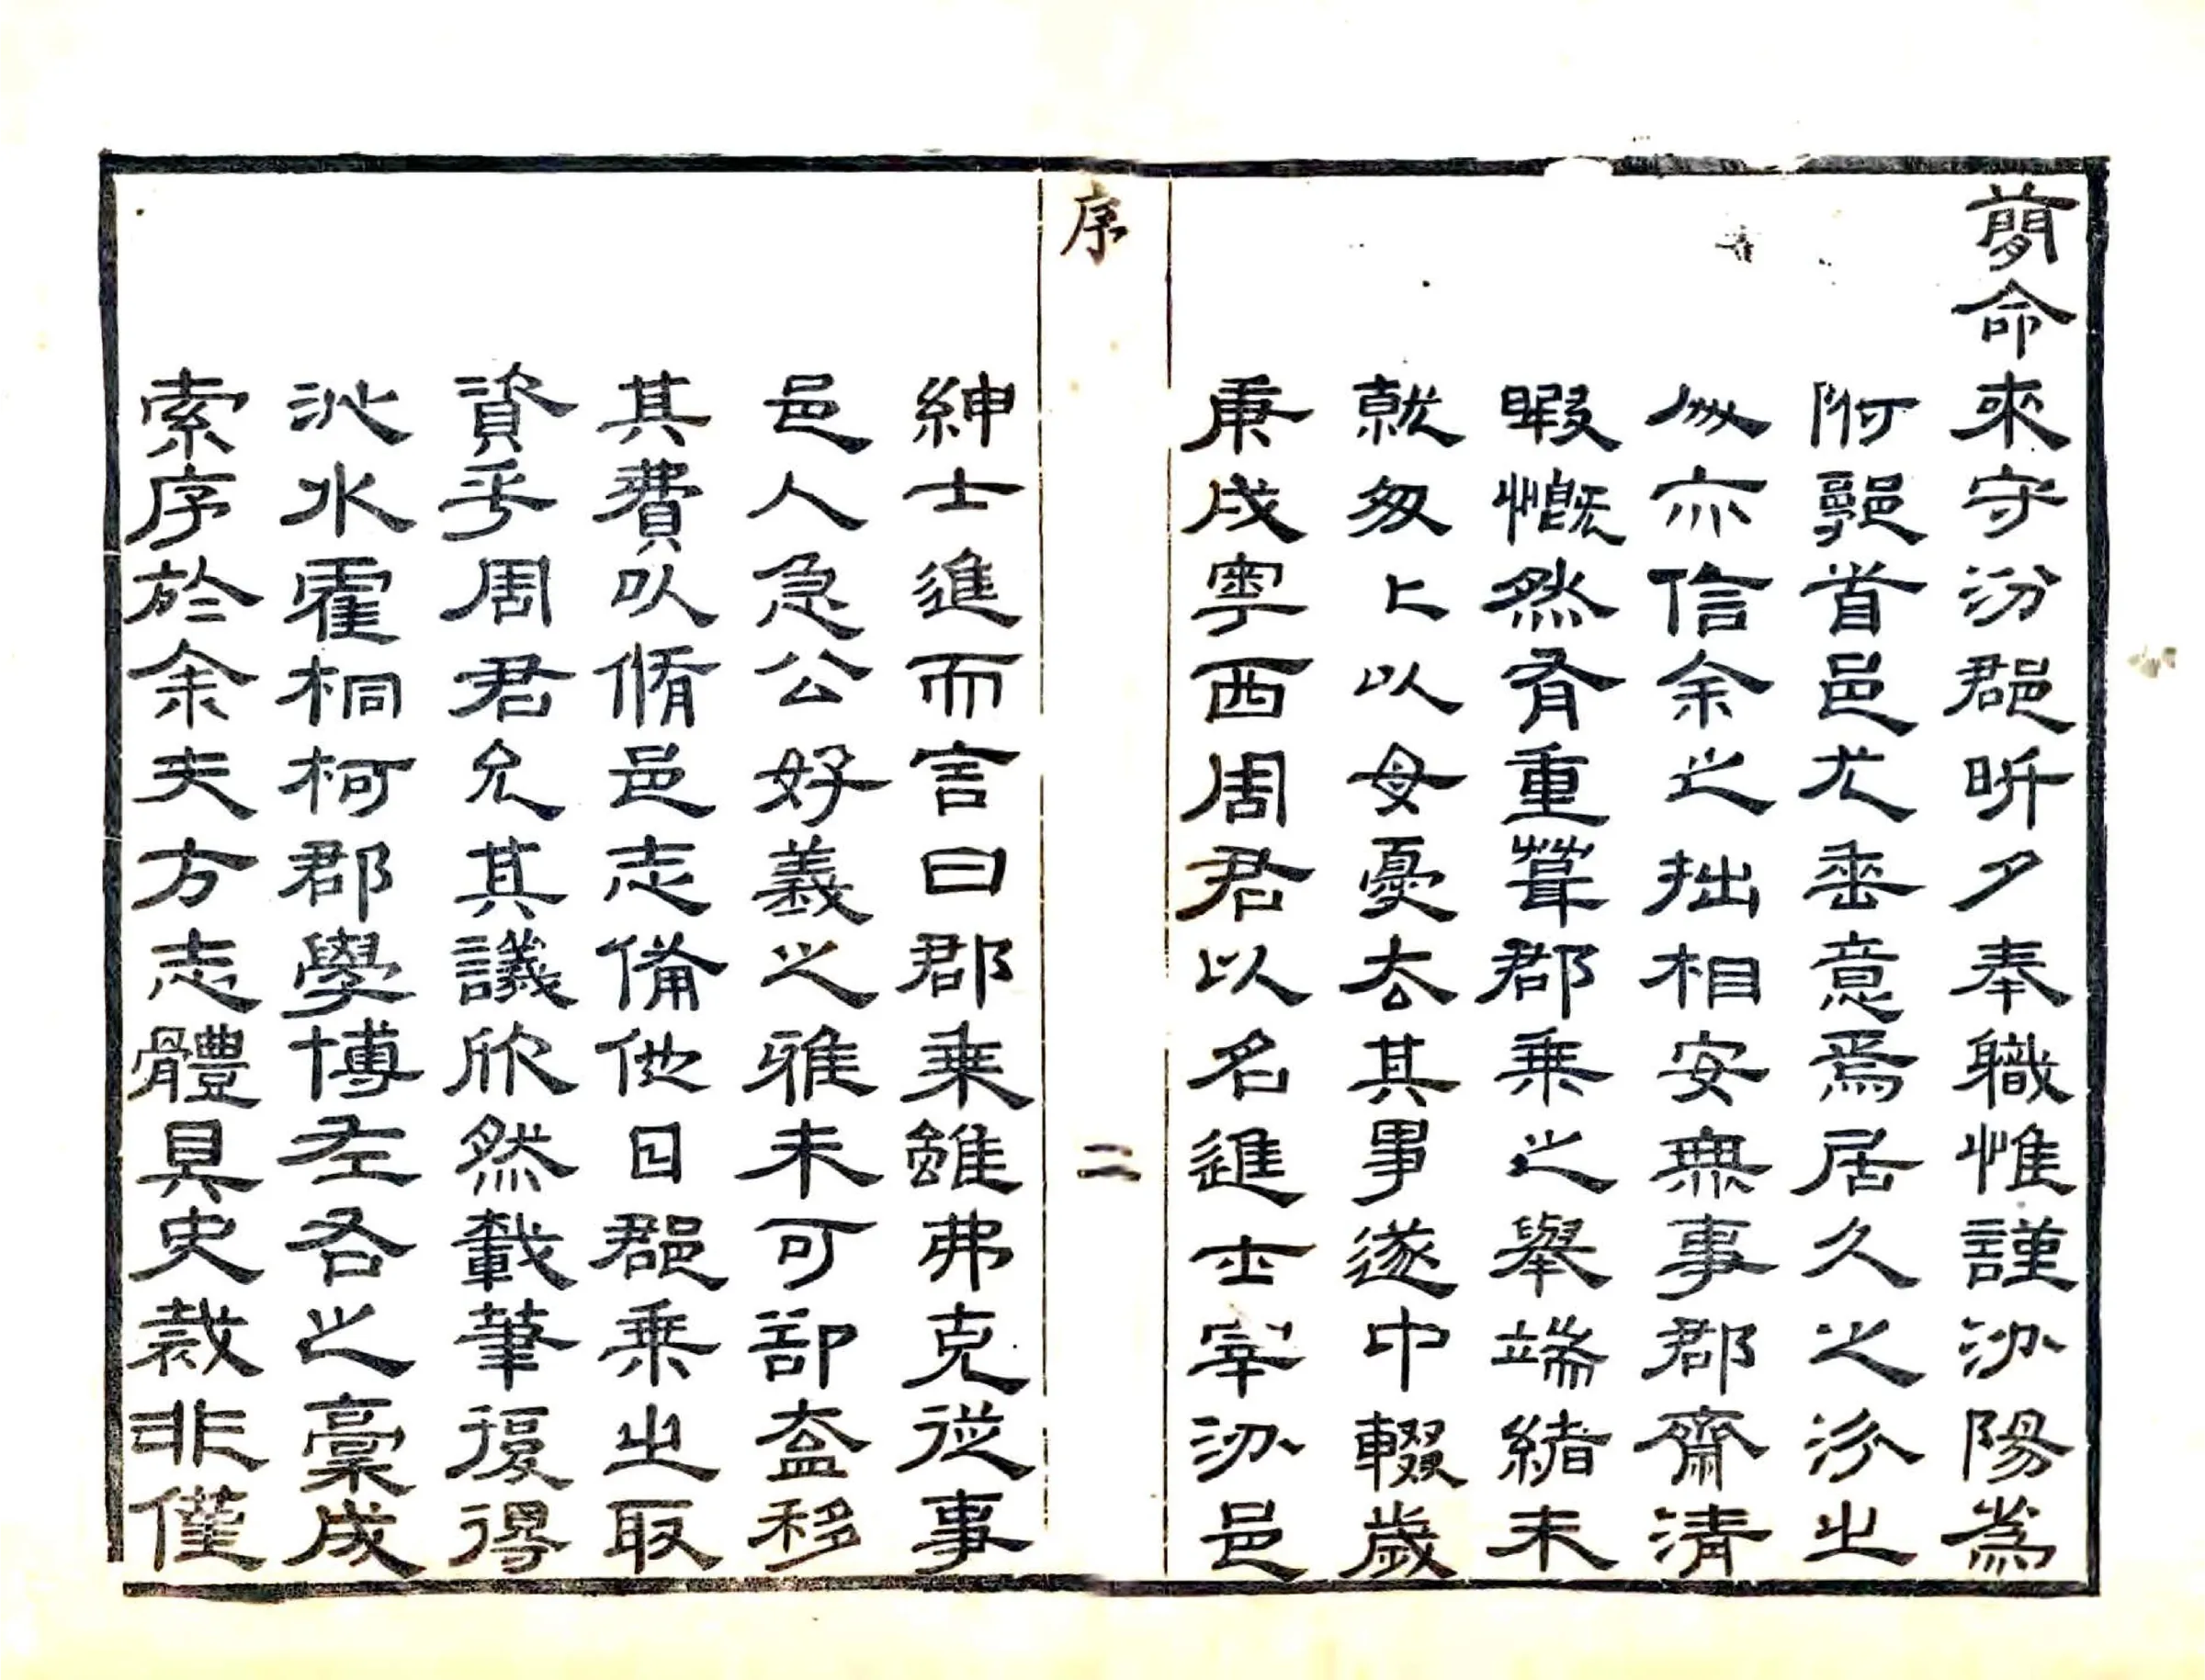 蕳命來守汾郡昕夕奉職惟謹汾陽爲
附郭首邑尤垂意焉居久之汾之
人亦信余之拙相安無事郡齋清
暇慨然有重葺郡乘之舉端緒未
就匆匆以母憂去其事遂中輟歲
庚戌粤西周君以名進士宰汾邑
序
二
紳士進而言曰郡乘雖弗克從事
邑人急公好義之雅未可郚盍移
其費以脩邑志備他日郡乘之取
資乎周君允其議欣然載筆復得
沁水霍桐柯郡學博左右之稾成
索序於余夫方志體具史裁非僅